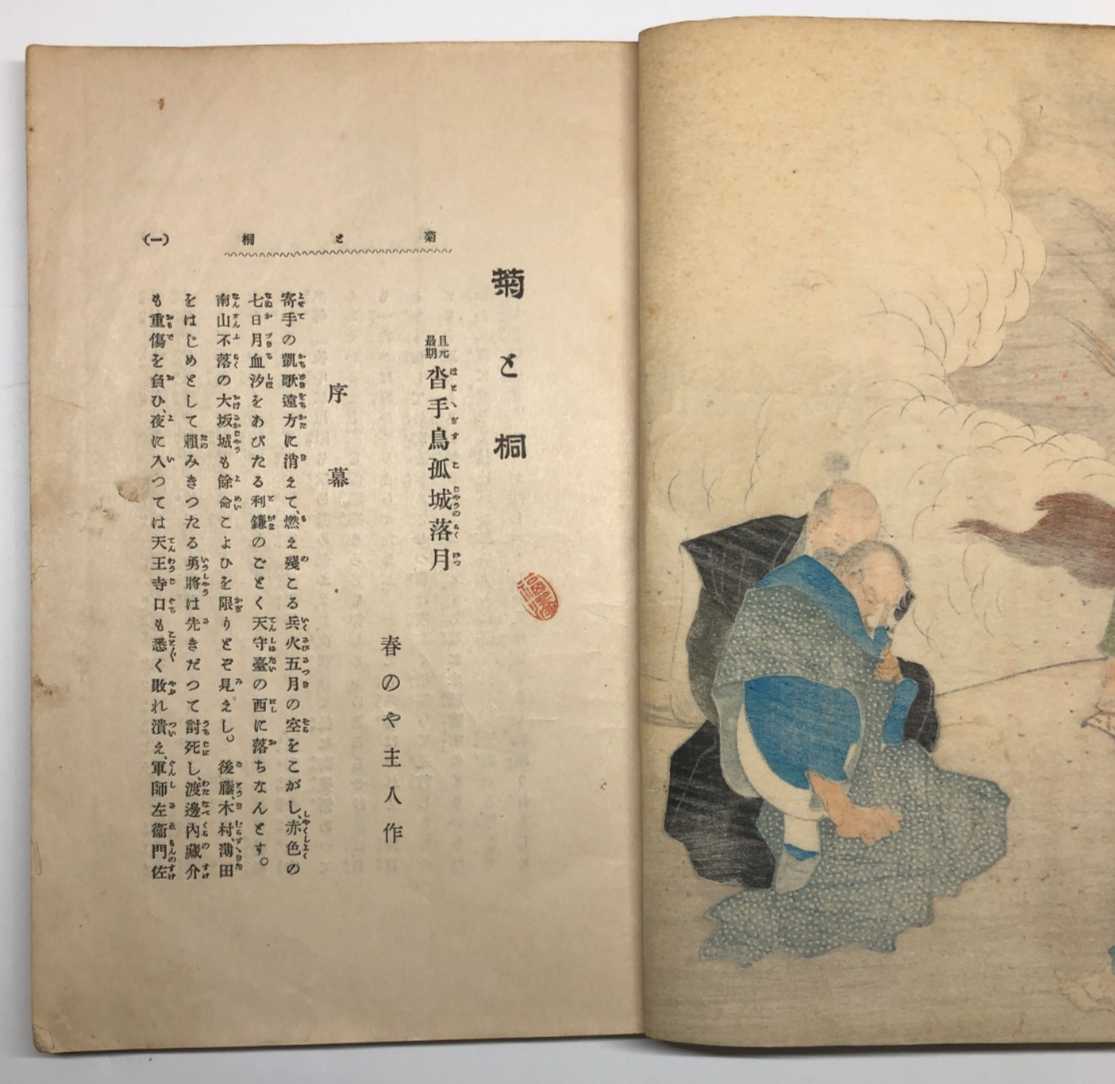 菊と桐
(一)
菊と桐
且元最期 沓手鳥孤城落月
春のや主人作
序幕
寄手の凱歌遠方に消えて、燃え殘こる兵火五月の空をこがし、赤色の
七日月血汐をあびたる利鎌のごとく天守臺の西に落ちなんとす。
南山不落の大坂城も餘命こよひを限りとぞ見えし。後藤木村、薄田
をはじめとして頼みきつたる勇將は先きだつて討死し、渡邊內藏介
も重傷を負ひ、夜に入つては天王寺口も悉く敗れ潰え、軍師左衞門佐